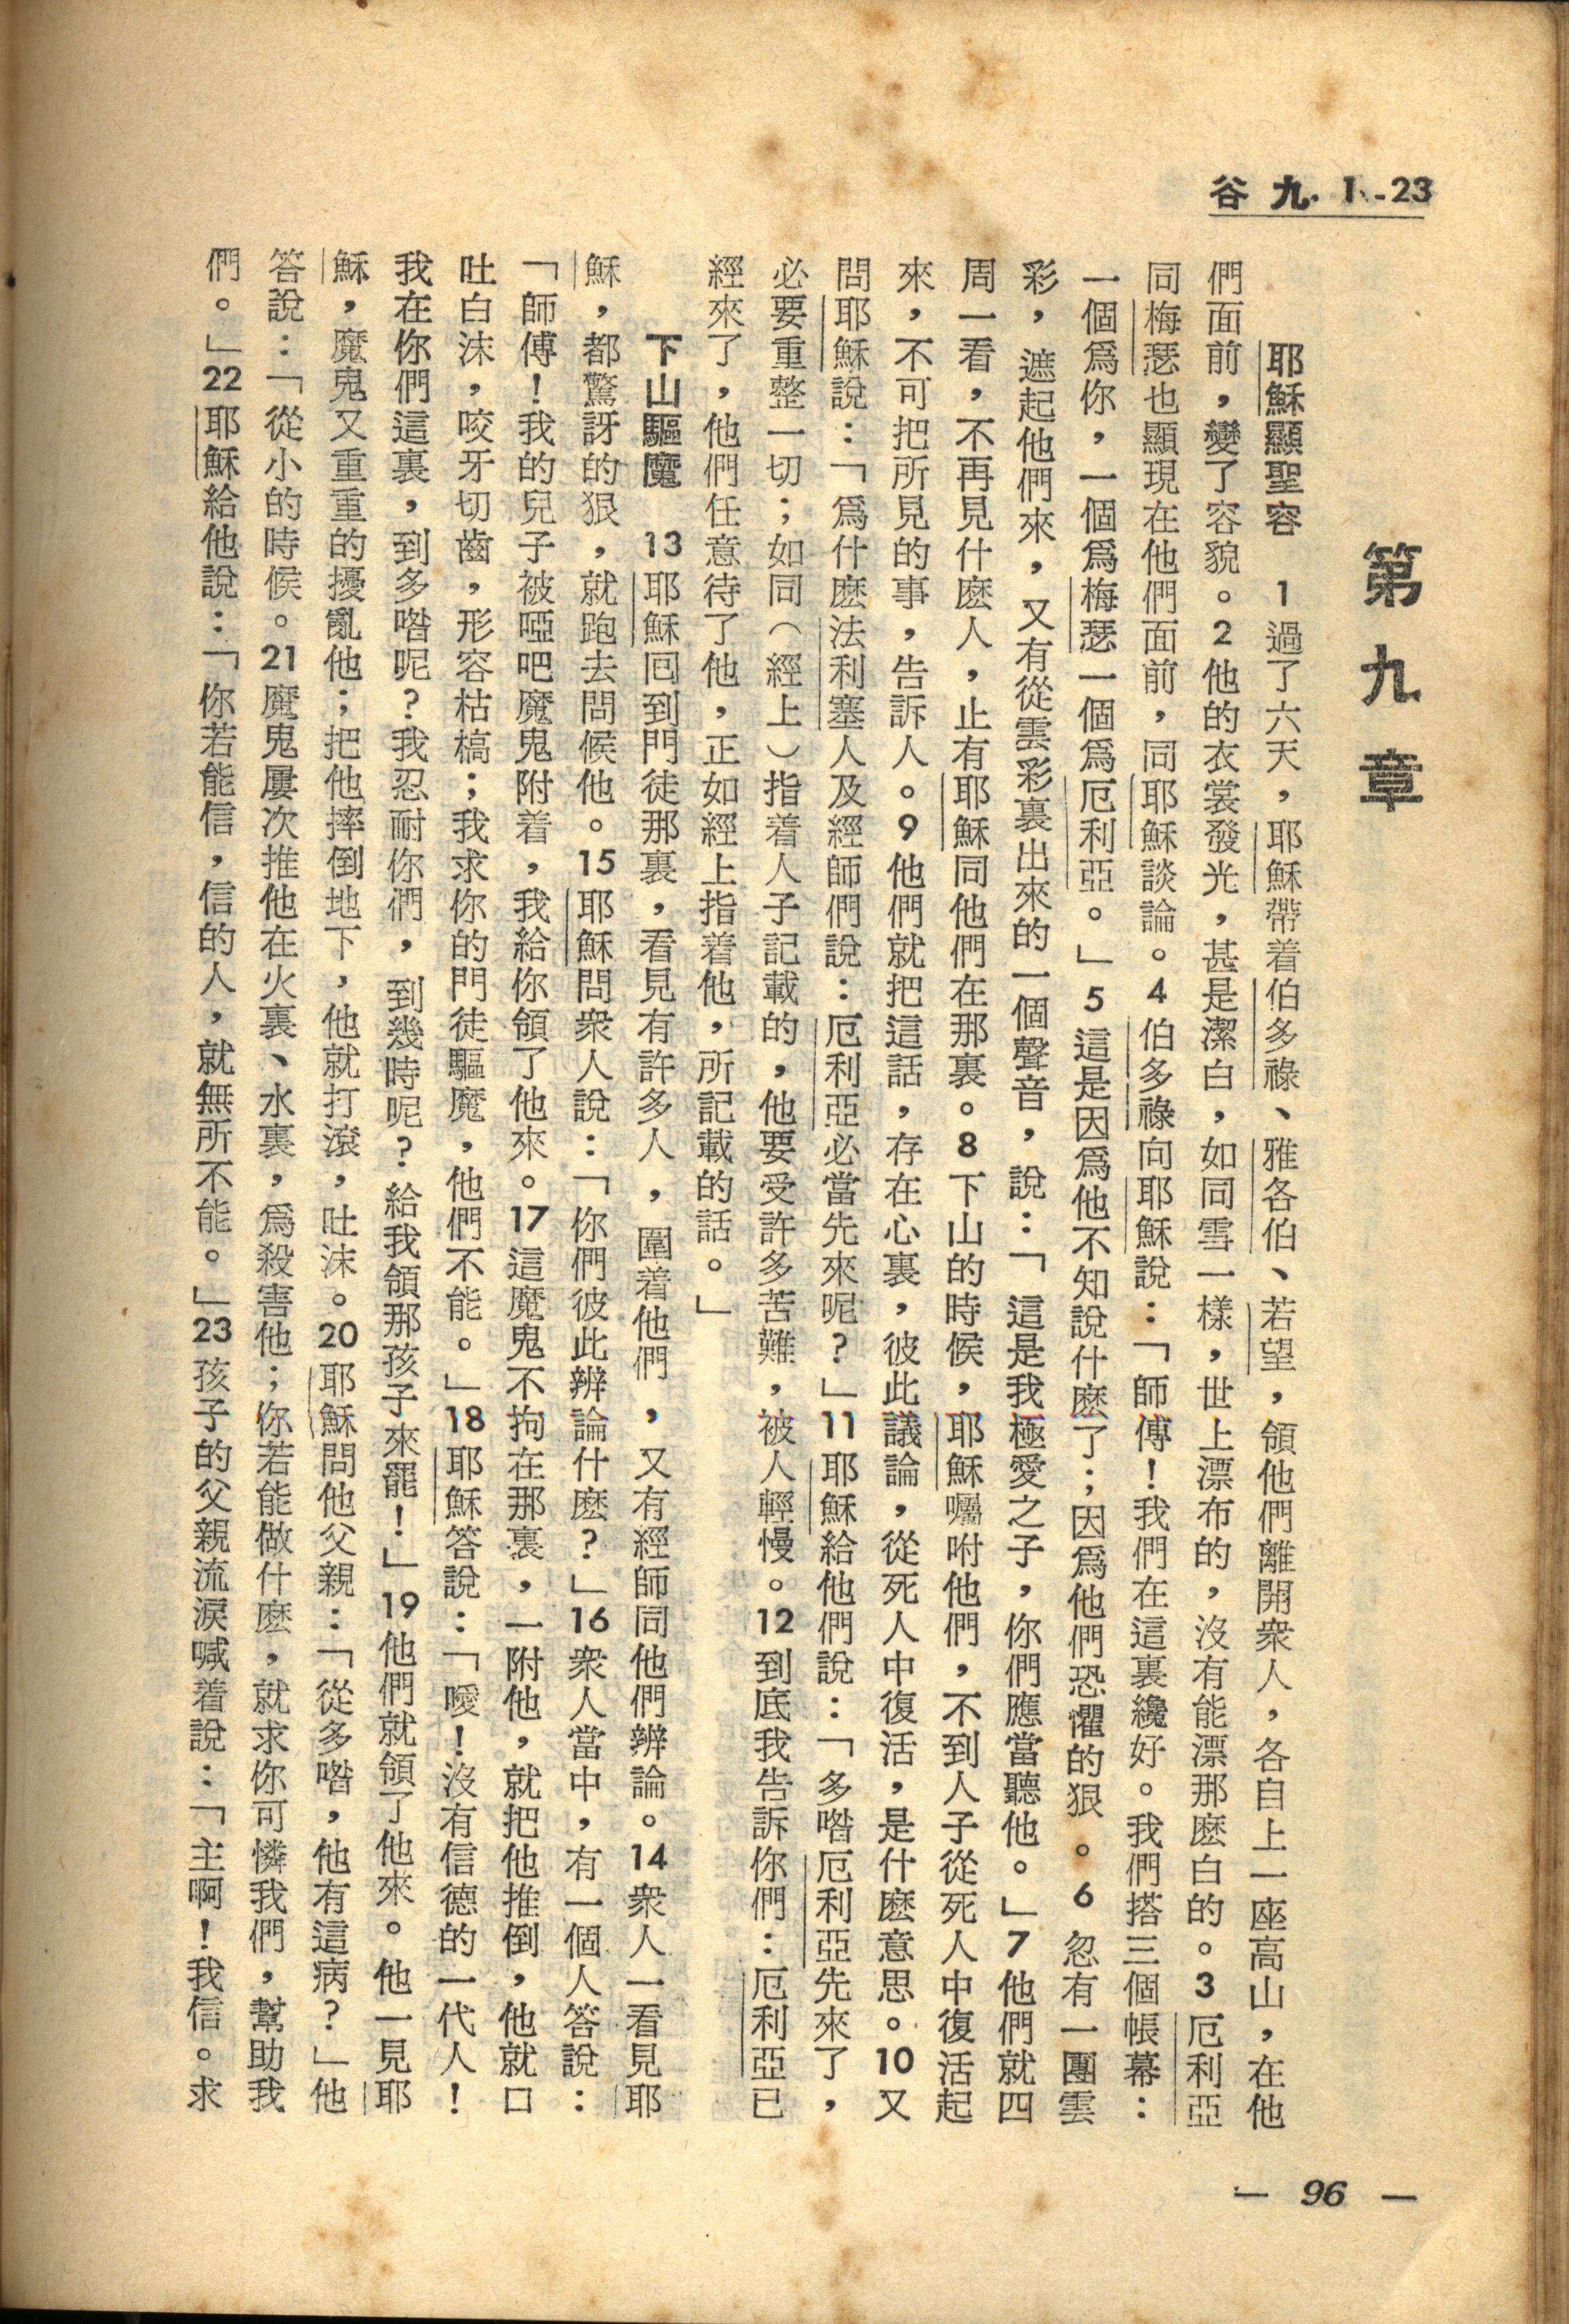 谷九．1-23
第九章
耶穌顯聖容　1過了六天，耶穌帶着伯多祿、雅各伯、若望，領他們離開衆人，各自上一座高山，在他
們面前，變了容貌。2他的衣裳發光，甚是潔白，如同雪一樣，世上漂布的，沒有能漂那麽白的。3厄利亞
同梅瑟也顯現在他們面前，同耶穌談論。4伯多祿向耶穌說：「師傅！我們在這裏纔好。我們搭三個帳幕：
一個爲你，一個爲梅瑟一個爲厄利亞。」5這是因爲他不知說什麽了；因爲他們恐懼的狠。6忽有一團雲
彩，遮起他們來，又有從雲彩裏出來的一個聲音，說：「這是我極愛之子，你們應當聽他。」7他們就四
周一看，不再見什麽人，止有耶穌同他們在那裏。8下山的時候，耶穌囑咐他們，不到人子從死人中復活起
來，不可把所見的事，告訴人。9他們就把這話，存在心裏，彼此議論，從死人中復活，是什麽意思。10又
問耶穌說：「爲什麽法利塞人及經師們說：厄利亞必當先來呢？」11耶穌給他們說：「多喒厄利亞先來了，
必要重整一切；如同（經上）指着人子記載的，他要受許多苦難，被人輕慢。12到底我告訴你們：厄利亞已
經來了，他們任意待了他，正如經上指着他，所記載的話。」
下山驅魔　13耶穌回到門徒那裏，看見有許多人，圍着他們，又有經師同他們辨論。14衆人一看見耶
穌，都驚訝的狠，就跑去問候他。15耶穌問衆人說：「你們彼此辨論什麽？」16衆人當中，有一個人答說：
「師傅！我的兒子被啞吧魔鬼附着，我給你領了他來。17這魔鬼不拘在那裏，一附他，就把他推倒，他就口
吐白沫，咬牙切齒，形容枯槁；我求你的門徒驅魔，他們不能。」18耶穌答說：「噯！沒有信德的一代人！
我在你們這裏，到多喒呢？我忍耐你們，到幾時呢？給我領那孩子來罷！」19他們就領了他來。他一見耶
穌，魔鬼又重重的擾亂他；把他摔倒地下，他就打滾，吐沫。20耶穌問他父親：「從多喒，他有這病？」他
答說：「從小的時候。21魔鬼屢次推他在火裏、水裏，爲殺害他；你若能做什麽，就求你可憐我們，幫助我
們。」22耶穌給他說：「你若能信，信的人，就無所不能。」23孩子的父親流淚喊着說：「主啊！我信。求
— 96 —